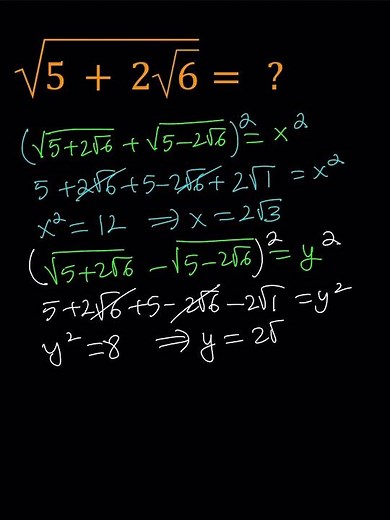 √(5 + 2√6) = ?
(√(5+2√6) + √(5-2√6))² = x²
5+2√6+5-2√6+2√1 = x²
x² = 12 ⇒ x = 2√3
(√(5+2√6) - √(5-2√6))² = y²
5+2√6+5-2√6-2√1 = y²
y² = 8 ⇒ y = 2√